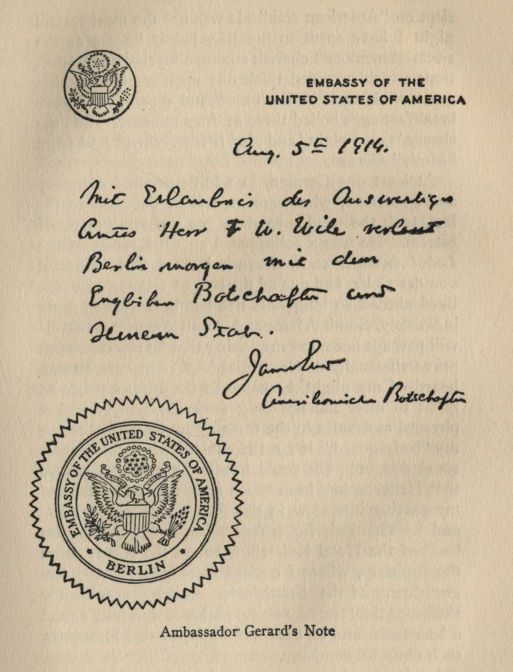 EMBASSY OF THE
UNITED STATES OF AMERICA
Aug. 5 1914.
Mit Erlaubnis des Auswertigen
Amtes Herr F W. Wile verlasst
Berlin morgen mit dem
Englishen Botschafter und
seinem Stab.
Amerikanische Botschafter
EMBASSY OF THE UNITED STATES OF AMERICA
BERLIN
Ambassador Gerard's Note